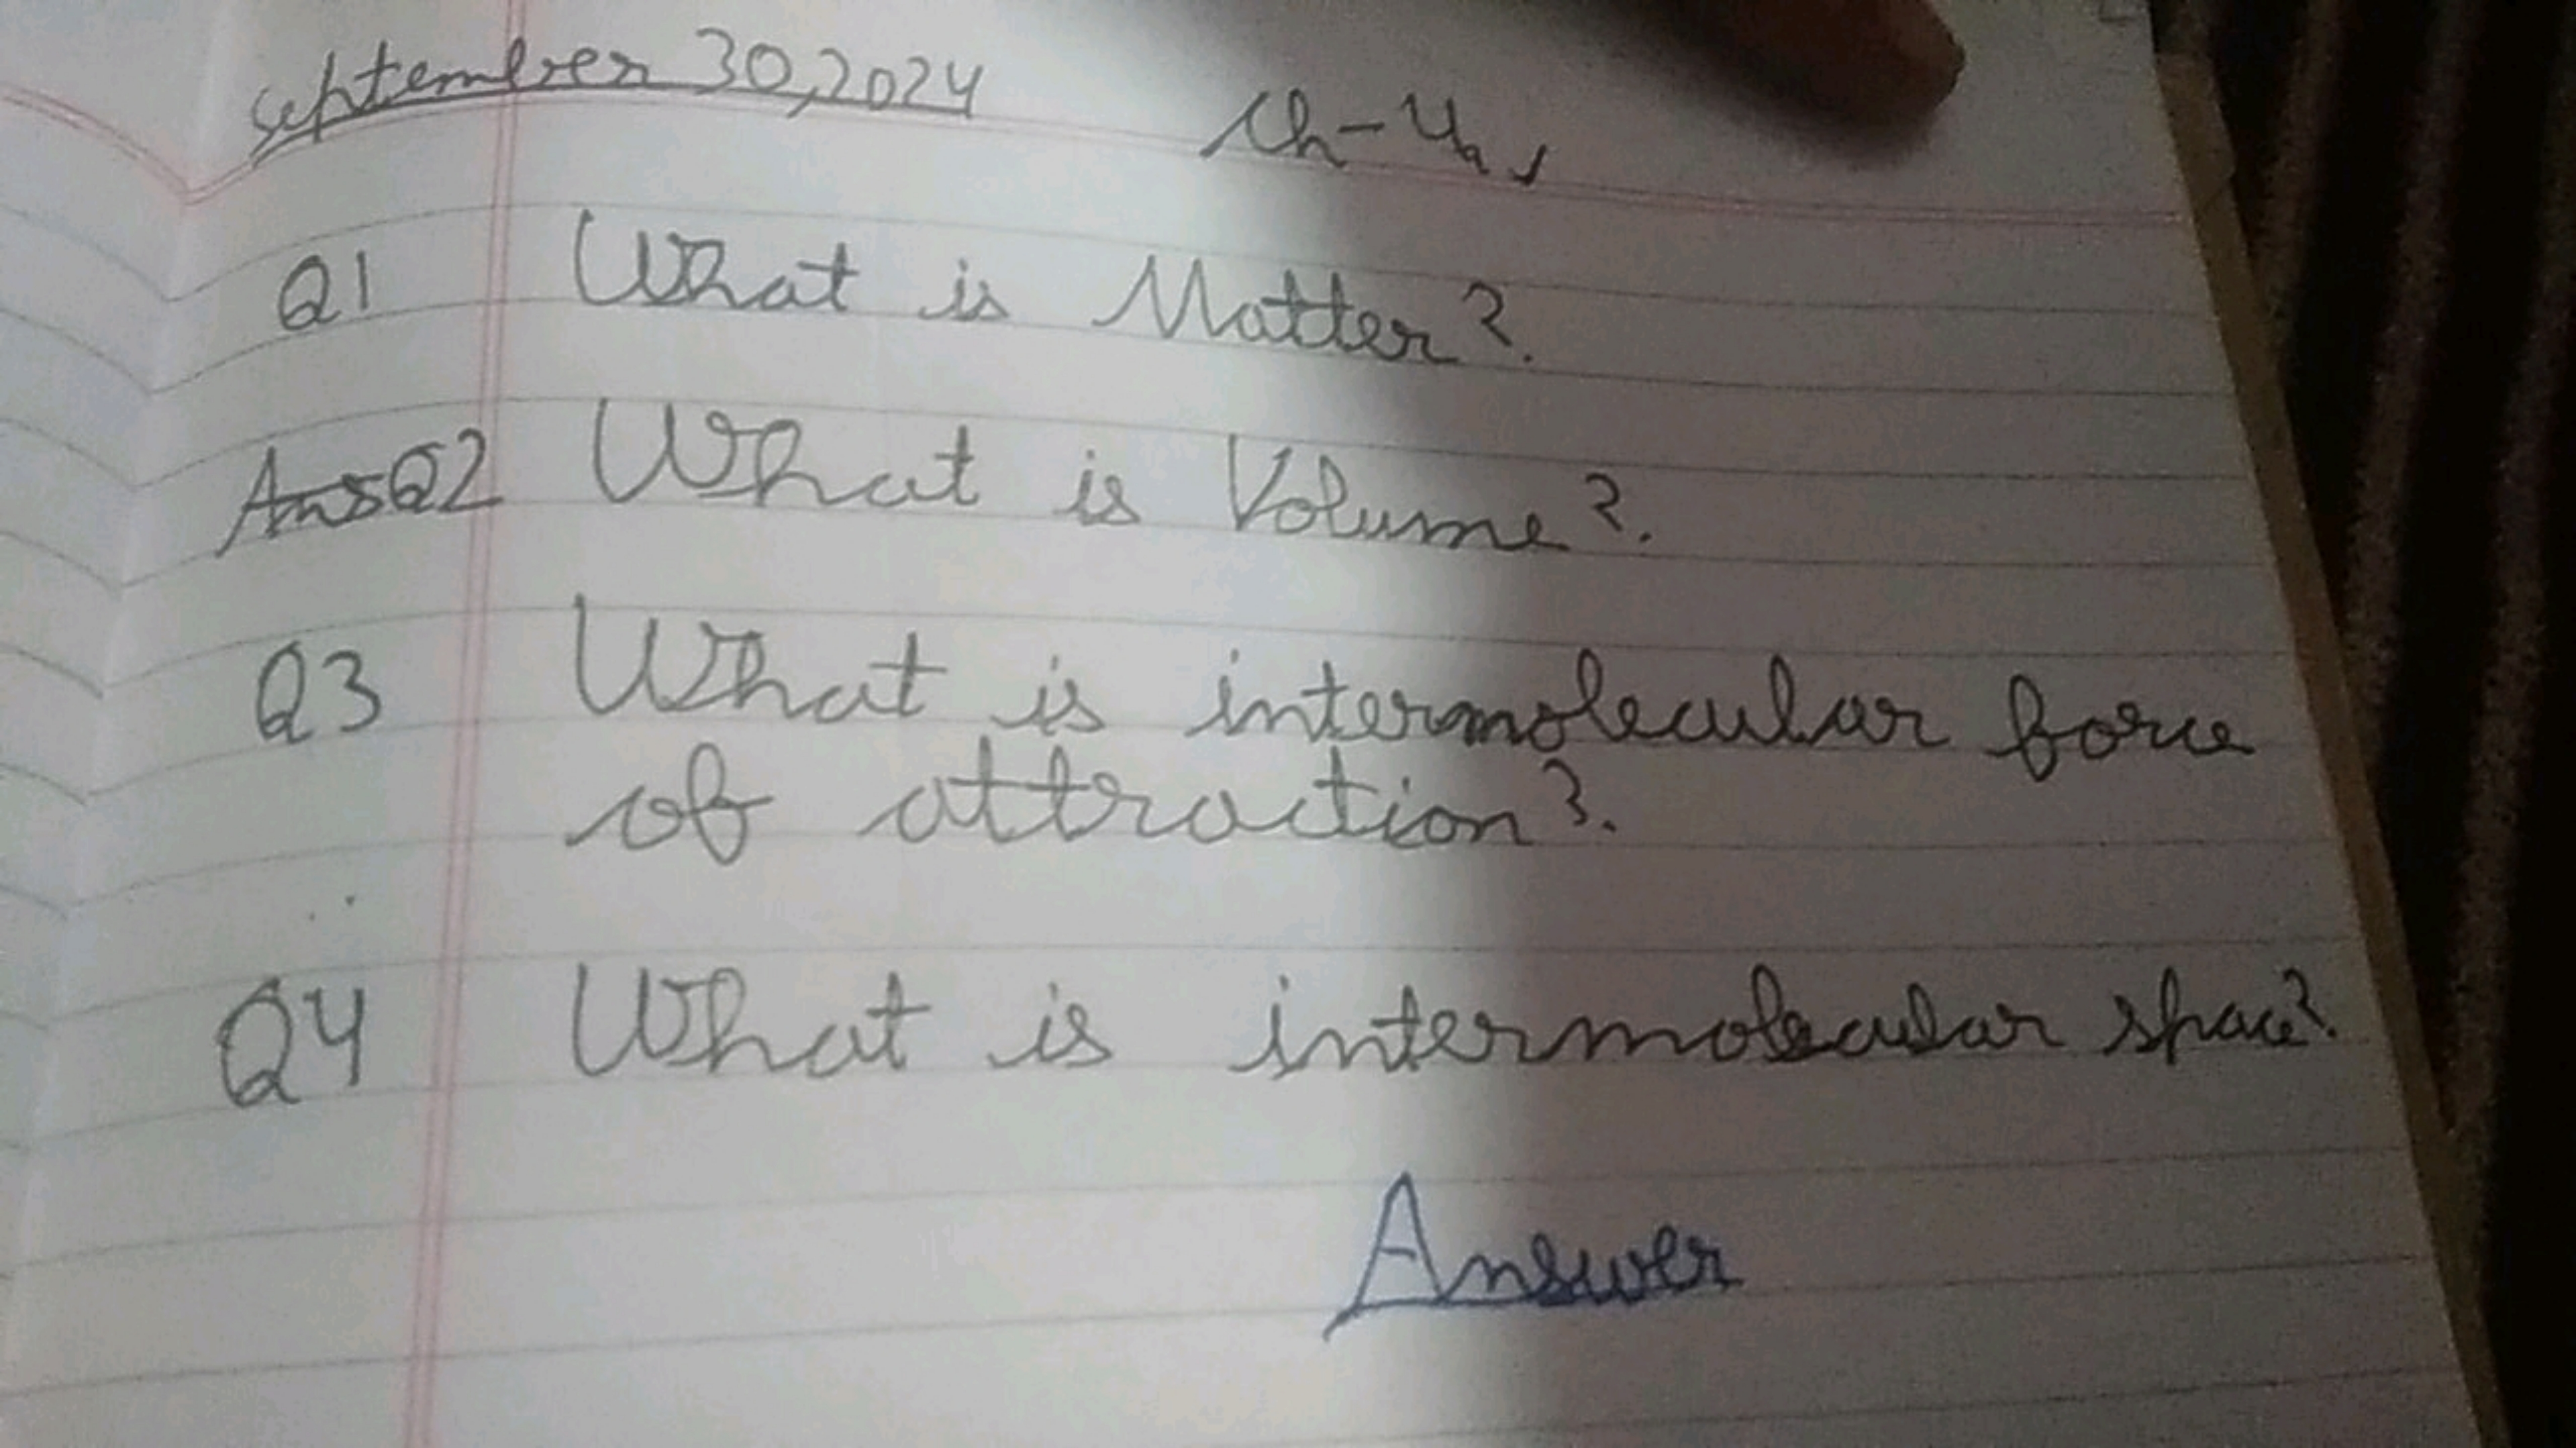 September 30, 2024 Ch-4
Q1 What is Matter?.
Q2 What is Volume?.
Q3 What is intermolecular force
of attraction?.
Q4 What is intermolecular space?.
Answer